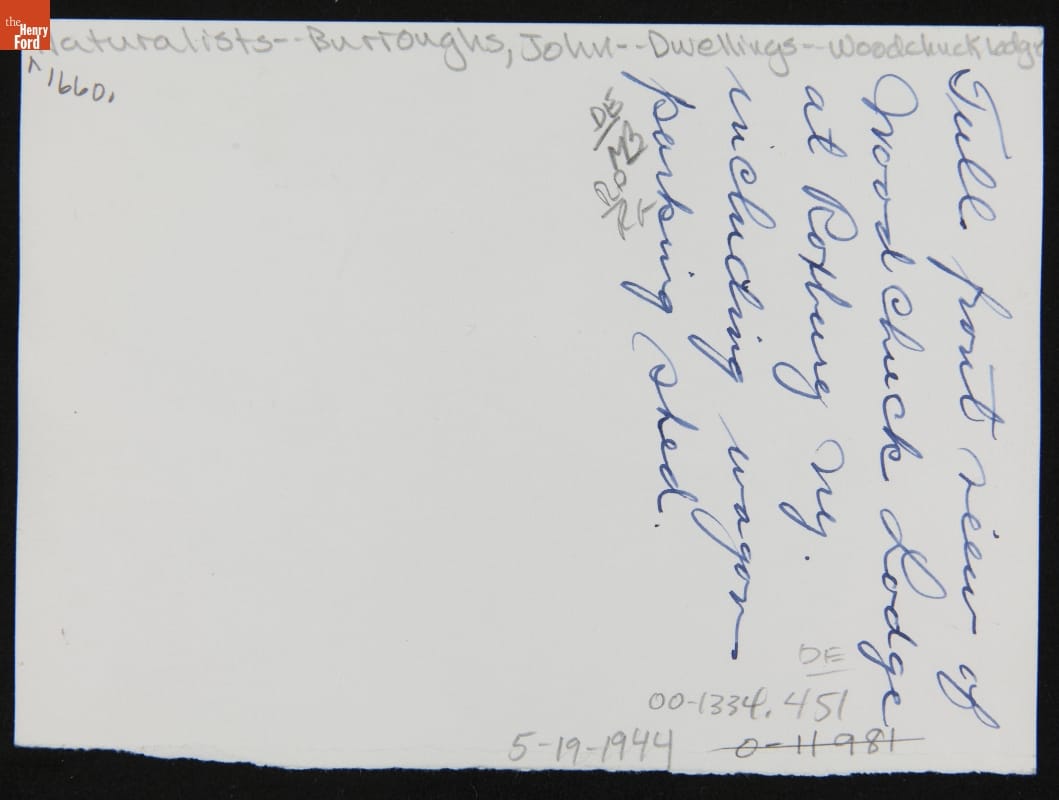 the
Henry
Ford
Naturalists--Burroughs, John--Dwellings--Woodchuck Lodge
^1660.
Full front view of
Woodchuck Lodge
at Roxbury Ny.
including wagon
parking shed.
DE
00-1334.451
5-19-1944 0-11981